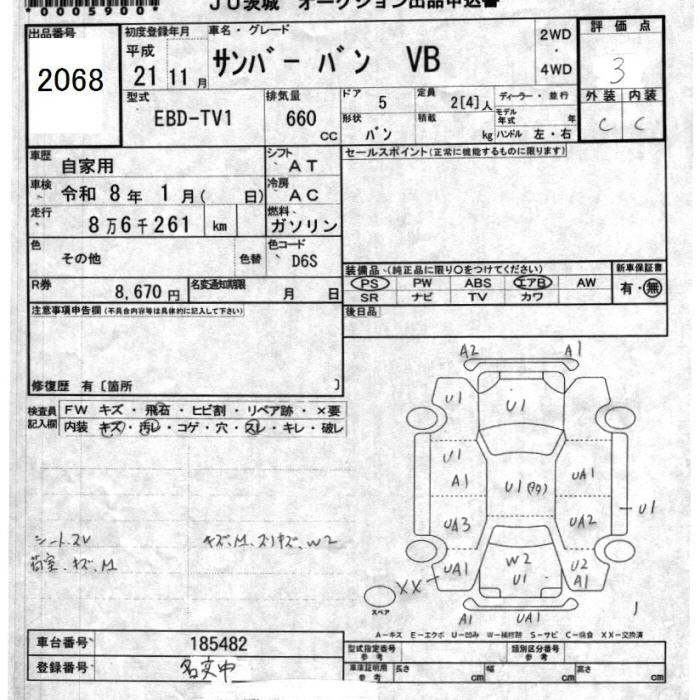 *00059000*
JU茨城 オークション出品申込書
出品番号 2068
初度登録年月 平成 21 11月
車名・グレード サンバー バン VB
2WD・4WD
評価点 3
外装 C 内装 C
型式 EBD-TV1
排気量 660 CC
ドア 5
定員 2[4]人
形状 バン
積載 kg
ディーラー・並行
モデル年式 年
ハンドル 左・右
車歴 自家用
シフト AT
セールスポイント(正常に機能するものに限ります)
車検 令和 8年 1月( 日)
冷房 AC
走行 8万6千261 km
燃料 ガソリン
色 その他 色替
色コード D6S
装備品 (純正品に限り〇をつけてください)
PS PW ABS エアB AW
SR ナビ TV カワ
新車保証書 有・無
R券 8,670円
名変通知期限 月 日
後日品
注意事項申告欄(不具合内容等は具体的に記入して下さい)
修復歴 有〔箇所 〕
検査員記入欄
FW キズ・飛石・ヒビ割・リペア跡・×要
内装 キズ・汚レ・コゲ・穴・スレ・キレ・破レ
シートスレ
荷室、キズ、M
キズ、M、スリキズ、W2
A2 A1
U1 U1
U1 A1 U1(タタ) UA1
UA3 UA2 U1
XX UA1 W2 U1 U2 A1
スペア
A1 UA1
A−キズ E−エクボ U−凹み W−補修跡 S−サビ C−腐食 XX−交換済
車台番号 185482
型式指定番号 参考
類別区分番号 参考
登録番号 名変中
車庫証明用 参考
長さ cm 幅 cm 高さ cm